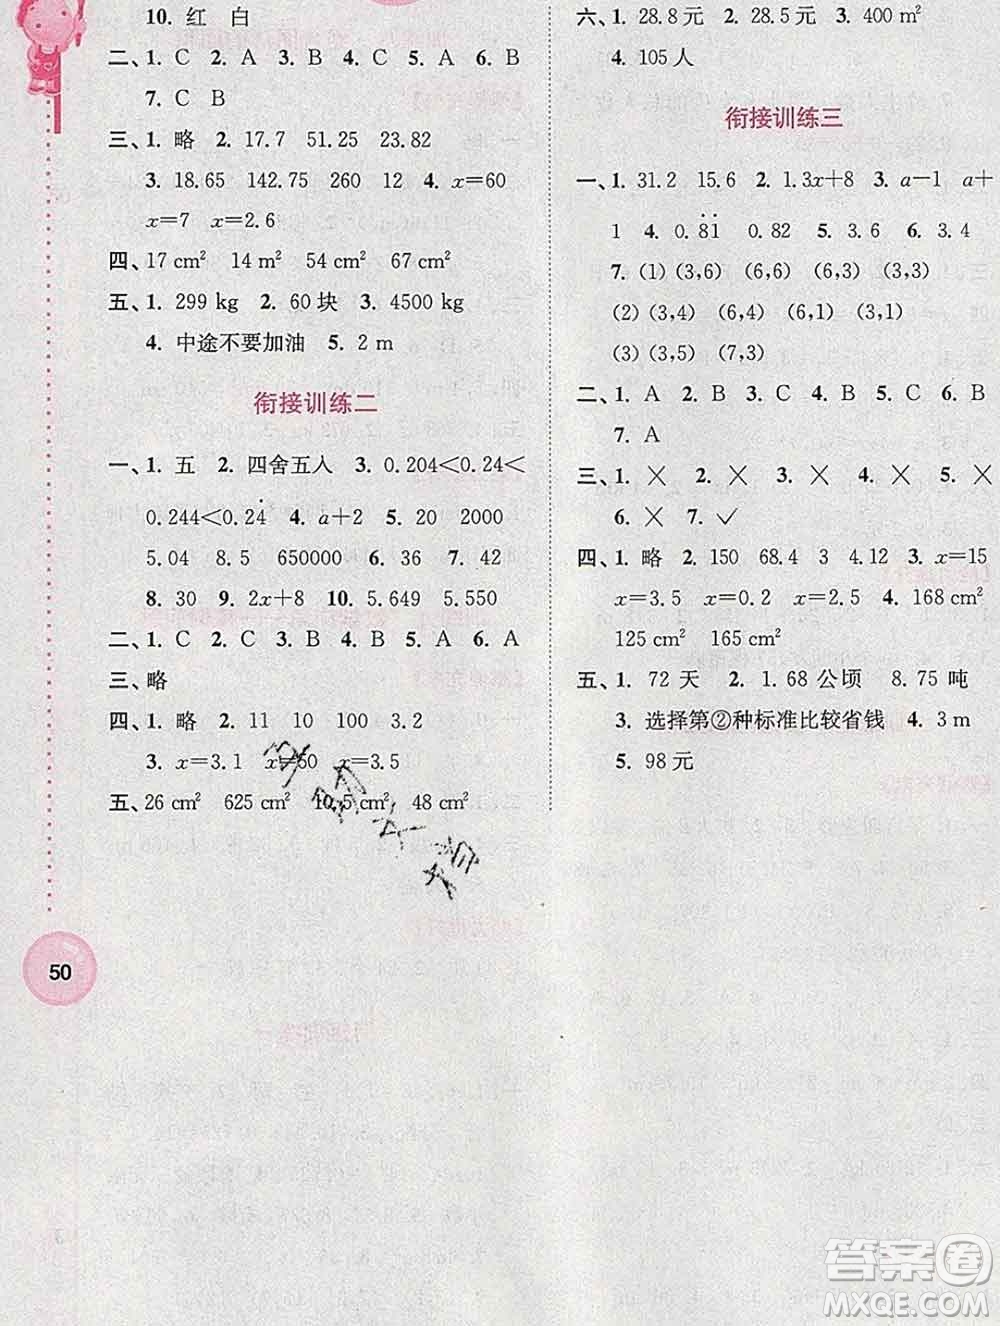 10. 红　白
二、1. C　2. A　3. B　4. C　5. A　6. B
7. C　B
三、1. 略　2. 17.7　51.25　23.82
3. 18.65　142.75　260　12　4. x=60
x=7　x=2.6
四、17 cm²　14 m²　54 cm²　67 cm²
五、1. 299 kg　2. 60块　3. 4500 kg
4. 中途不要加油　5. 2 m
衔接训练二
一、1. 五　2. 四舍五入　3. 0.204<0.24<
0.244<0.24̇　4. a+2　5. 20　2000
5.04　8.5　650000　6. 36　7. 42
8. 30　9. 2x+8　10. 5.649　5.550
二、1. C　2. C　3. B　4. B　5. A　6. A
三、略
四、1. 略　2. 11　10　100　3.2
3. x=3.1　x=50　x=3.5
五、26 cm²　625 cm²　10.5 cm²　48 cm²
50
六、1. 28.8元　2. 28.5元　3. 400 m²
4. 105人
衔接训练三
一、1. 31.2　15.6　2. 1.3x+8　3. a−1　a+
1　4. 0.8̇1̇　0.82　5. 3.6　6. 3.4
7. (1) (3,6)　(6,6)　(5,3)　(3,3)
(2) (3,4)　(6,4)　(6,1)　(3,1)
(3) (3,5)　(7,3)
二、1. A　2. B　3. C　4. B　5. C　6. B
7. A
三、1. ×　2. ×　3. ×　4. ×　5. ×
6. ×　7. ✓
四、1. 略　2. 150　68.4　3　4.12　3. x=15
x=3.5　x=0.2　x=1.5　4. 168 cm²
125 cm²　165 cm²
五、1. 72天　2. 1.68公顷　8.75吨
3. 选择第②种标准比较省钱　4. 3 m
5. 98元
答案圈
MXQE.COM